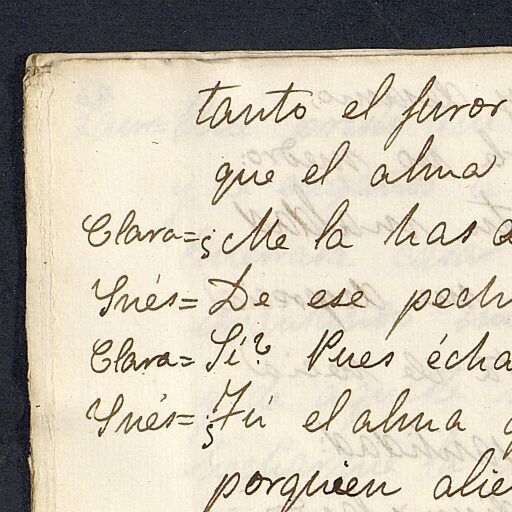 tanto el furor
que el alma
Clara= ¿Me la has
Inés= De ese pech
Clara= Sí? Pues écha
Inés= ¿Tú el alma
porquien alie